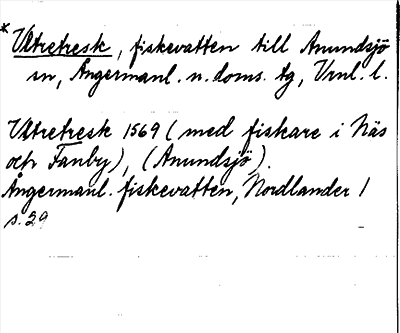 *Utretresk, fiskevatten till Anundsjö
sn, Ångermanl. n. doms. tg, Vrnl. l.
Utretresk 1569 (med fiskare i Näs
och Fanby), (Anundsjö).
Ångermanl. fiskevatten, Nordlander 1
s. 29